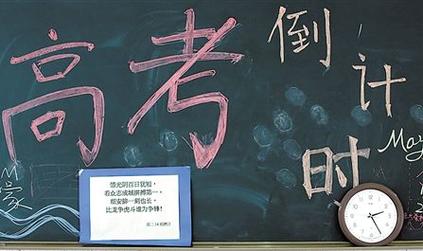 高考
倒计时
May
惜光阴百日犹短,
看众志成城拼搏第一,
细安排一刻也长,
比龙争虎斗谁为争锋!